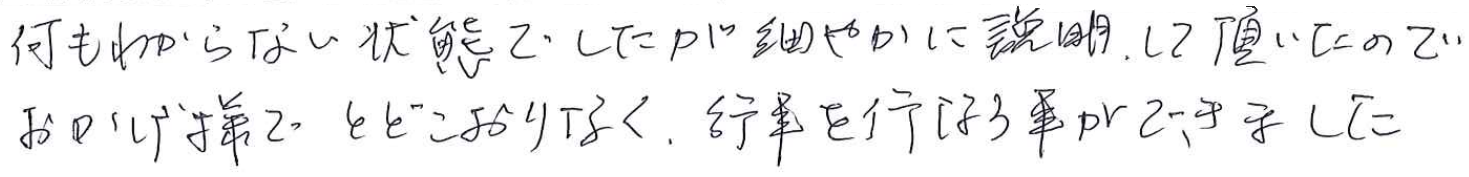 何もわからない状態でしたが細やかに説明.して頂いたので
おかげ様で とどこおりなく.行事を行なう事ができました